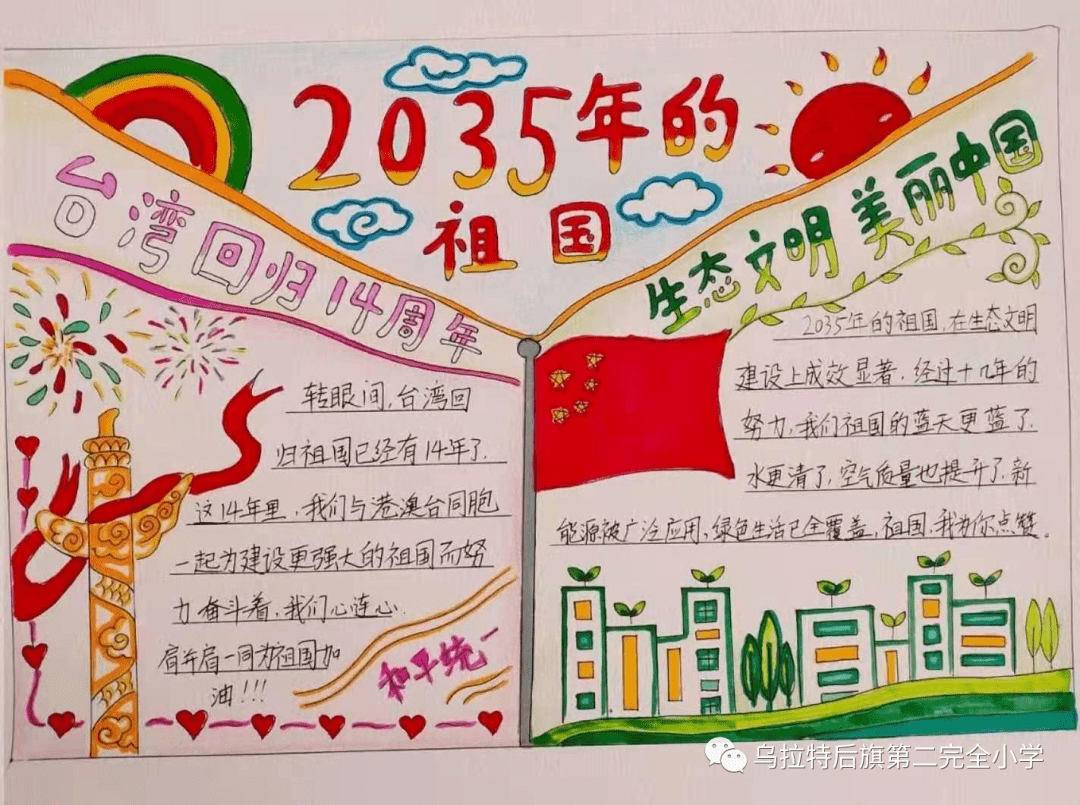 2035年的
祖国
台湾回归14周年
生态文明 美丽中国
转眼间,台湾回
归祖国已经有14年了.
这14年里,我们与港澳台同胞
一起为建设更强大的祖国而努
力奋斗着,我们心连心.
肩并肩一同为祖国加
油!!!
和平统一
2035年的祖国,在生态文明
建设上成效显著,经过十几年的
努力,我们祖国的蓝天更蓝了.
水更清了,空气质量也提升了,新
能源被广泛应用,绿色生活已全覆盖,祖国,我为你点赞。
乌拉特后旗第二完全小学